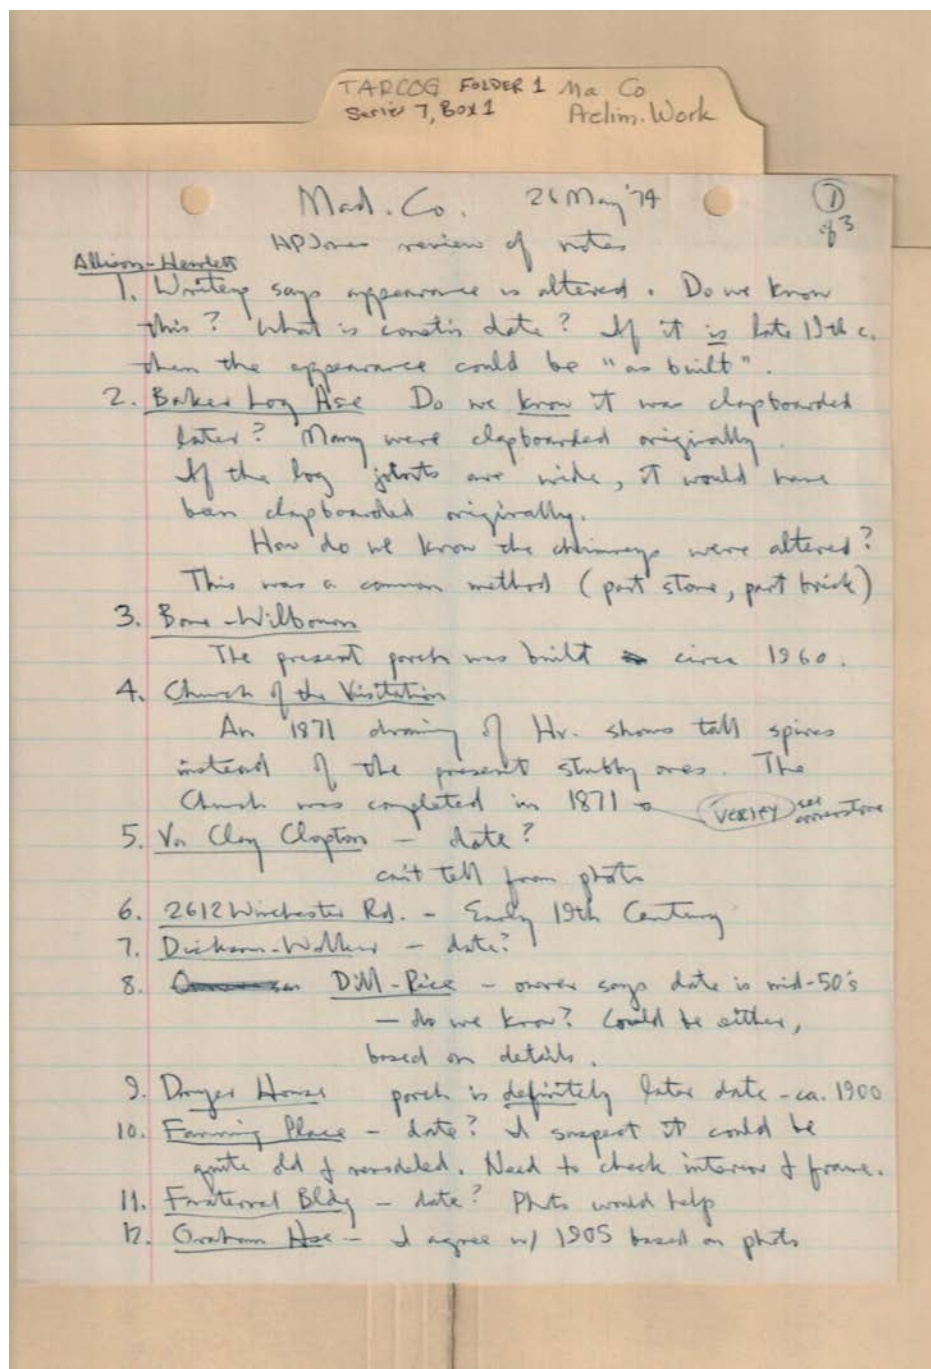 TARCOG FOLDER 1 Ma Co
Series 7, Box 1 Prelim. Work
Mad. Co. 26 May '74 1 of 3
HPJones review of notes
Allison-Hewlett
1. Writeup says appearance is altered. Do we know
this? What is constr'n date? If it is late 19th c.
then the appearance could be "as built".
2. Baker Log Hse Do we know it was clapboarded
later? Many were clapboarded originally.
If the log joints are wide, it would have
been clapboarded originally.
How do we know the chimneys were altered?
This was a common method (part stone, part brick)
3. Bone-Wilbourn
The present porch was built circa 1960.
4. Church of the Visitation
An 1871 drawing of Hv. shows tall spires
instead of the present stubby ones. The
Church was completed in 1871 VERIFY see cornerstone
5. Va Clay Clopton - date?
can't tell from photo
6. 2612 Winchester Rd. - Early 19th Century
7. Dickson-Walker - date?
8. Dill-Rice - owner says date is mid-50's
- do we know? Could be either,
based on details.
9. House porch is definitely later date - ca. 1900
10. Fanning Place - date? I suspect it could be
quite old & remodeled. Need to check interior & frame.
11. Fraternal Bldg - date? Photo would help
12. Graham Hse - I agree w/ 1905 based on photo